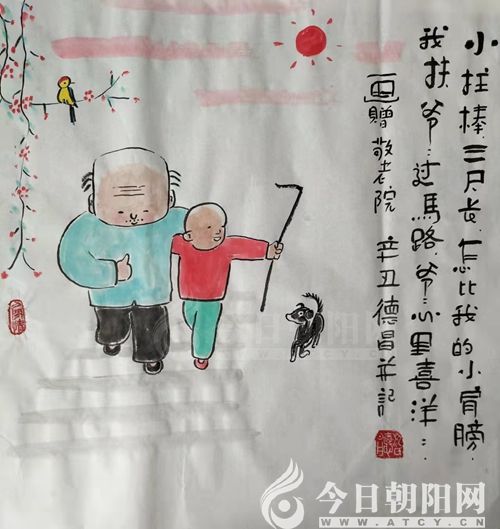 小拄棒三尺长怎比我的小肩膀
我扶爷:过馬路爷心里喜洋::
画贈敬老院 辛丑德昌并記
今日朝阳网
WWW.ATCY.CN